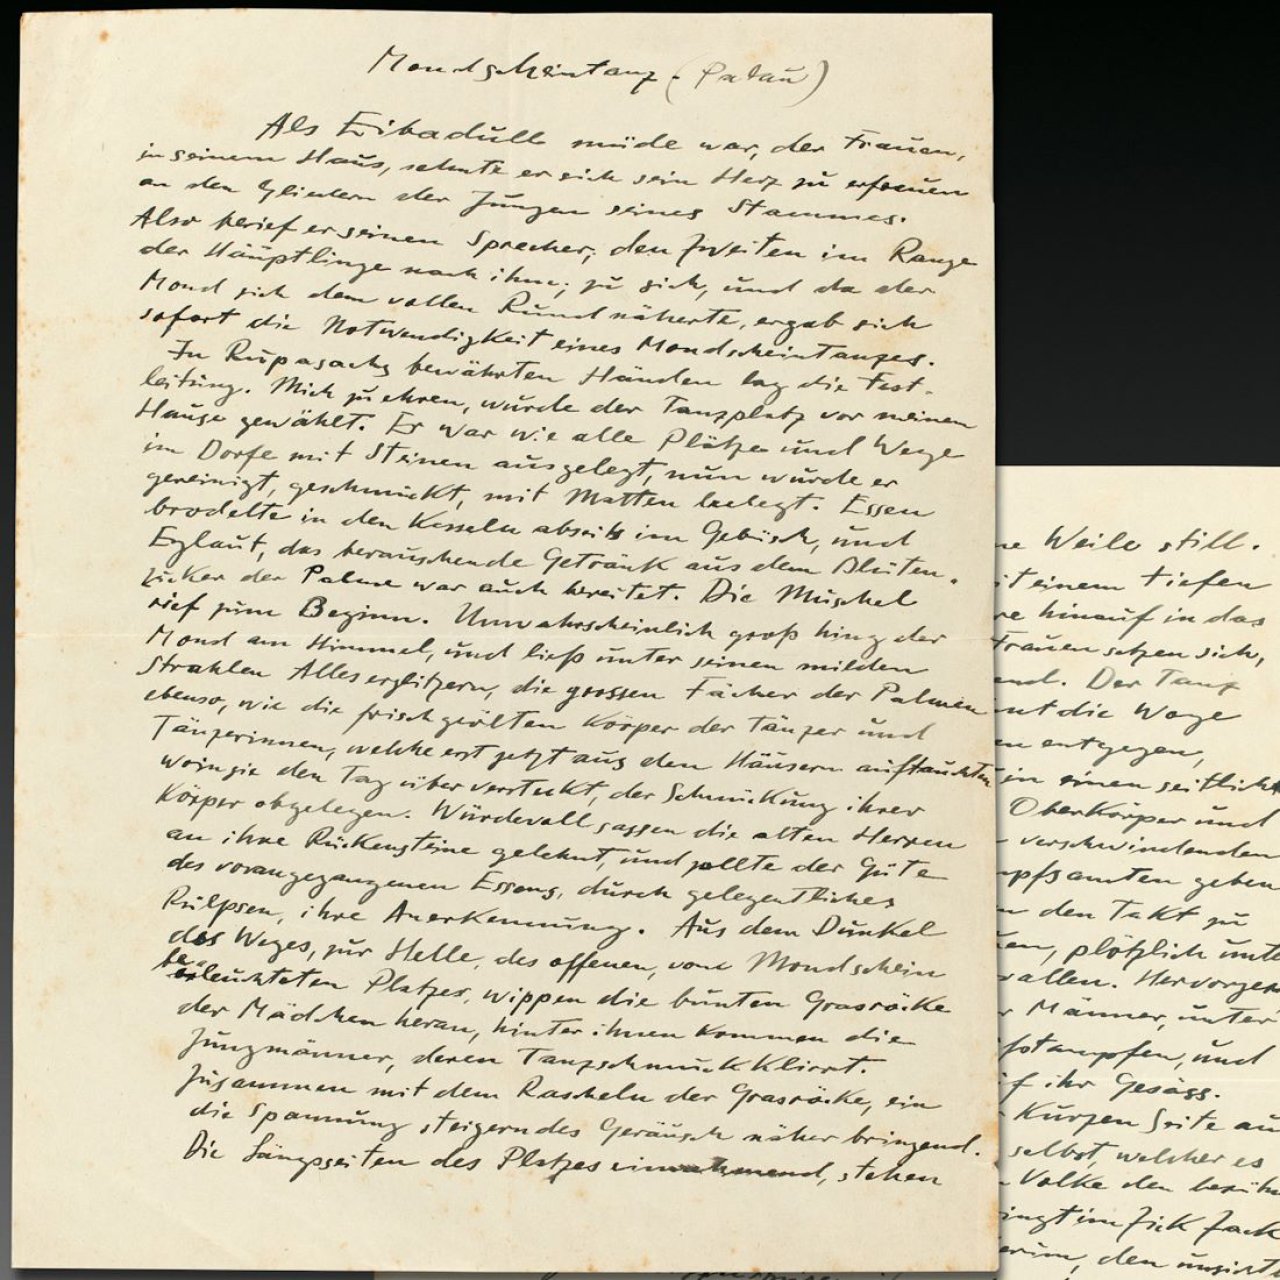 Mondscheintanz. (Palau)
Als Eibadull müde war, der Frauen,
in seinem Haus, sehnte er sich sein Herz zu erfreuen
an den Gliedern der Jungen seines Stammes.
Also berief er seinen Sprecher, den zweiten im Range
der Häuptlinge nach ihm, zu sich, und da der
Mond sich dem vollen Rund näherte, ergab sich
sofort die Notwendigkeit eines Mondscheintanzes.
In Rupasachs bewährten Händen lag die Fest-
leitung. Mich zu ehren, wurde der Tanzplatz vor meinem
Hause gewählt. Er war wie alle Plätze und Wege
im Dorfe mit Steinen ausgelegt, nun wurde er
gereinigt, geschmückt, mit Matten belegt. Essen
brodelte in den Kesseln abseits im Gebüsch, und
Eglaut, das berauschende Getränk aus dem Blüten-
zucker der Palme war auch bereitet. Die Muschel
rief zum Beginn. Unwahrscheinlich groß hing der
Mond am Himmel, und ließ unter seinen milden
Strahlen Alles erglitzern, die grossen Fächer der Palmen
ebenso, wie die frisch geölten Körper der Tänzer und
Tänzerinnen, welche erst jetzt aus den Häusern auftauchten
worin sie den Tag über versteckt, der Schmückung ihrer
Körper obgelegen. Würdevoll sassen die alten Herren
an ihre Rückensteine gelehnt, und zollte der Güte
des vorangegangenen Essens, durch gelegentliches
Rülpsen, ihre Anerkennung. Aus dem Dunkel
des Weges, zur Helle, des offenen, vom Mondschein
beleuchteten Platzes, wippen die bunten Grasröcke
der Mädchen heran, hinter ihnen kommen die
Jungmänner, deren Tanzschmuck klirrt.
Zusammen mit dem Rascheln der Grasröcke, ein
die Spannung steigerndes Geräusch näher bringend.
Die Längsseiten des Platzes einnehmend, stehen
ne Weile still.
it einem tiefen
re hinauf in das
Frauen setzen sich,
end. Der Tanz
mt die Woge
en entgegen,
in einen seitlich
Oberkörper und
verschwindenden
mpfsamten geben
den Takt zu
en, plötzlich unte
allen. Hervorgez
r Männer, unter
fstampfen, und
f ihr Gesäss.
Kurzen Seite au
selbst, welcher es
Volke den
ingt im Zick Zack
erin, den